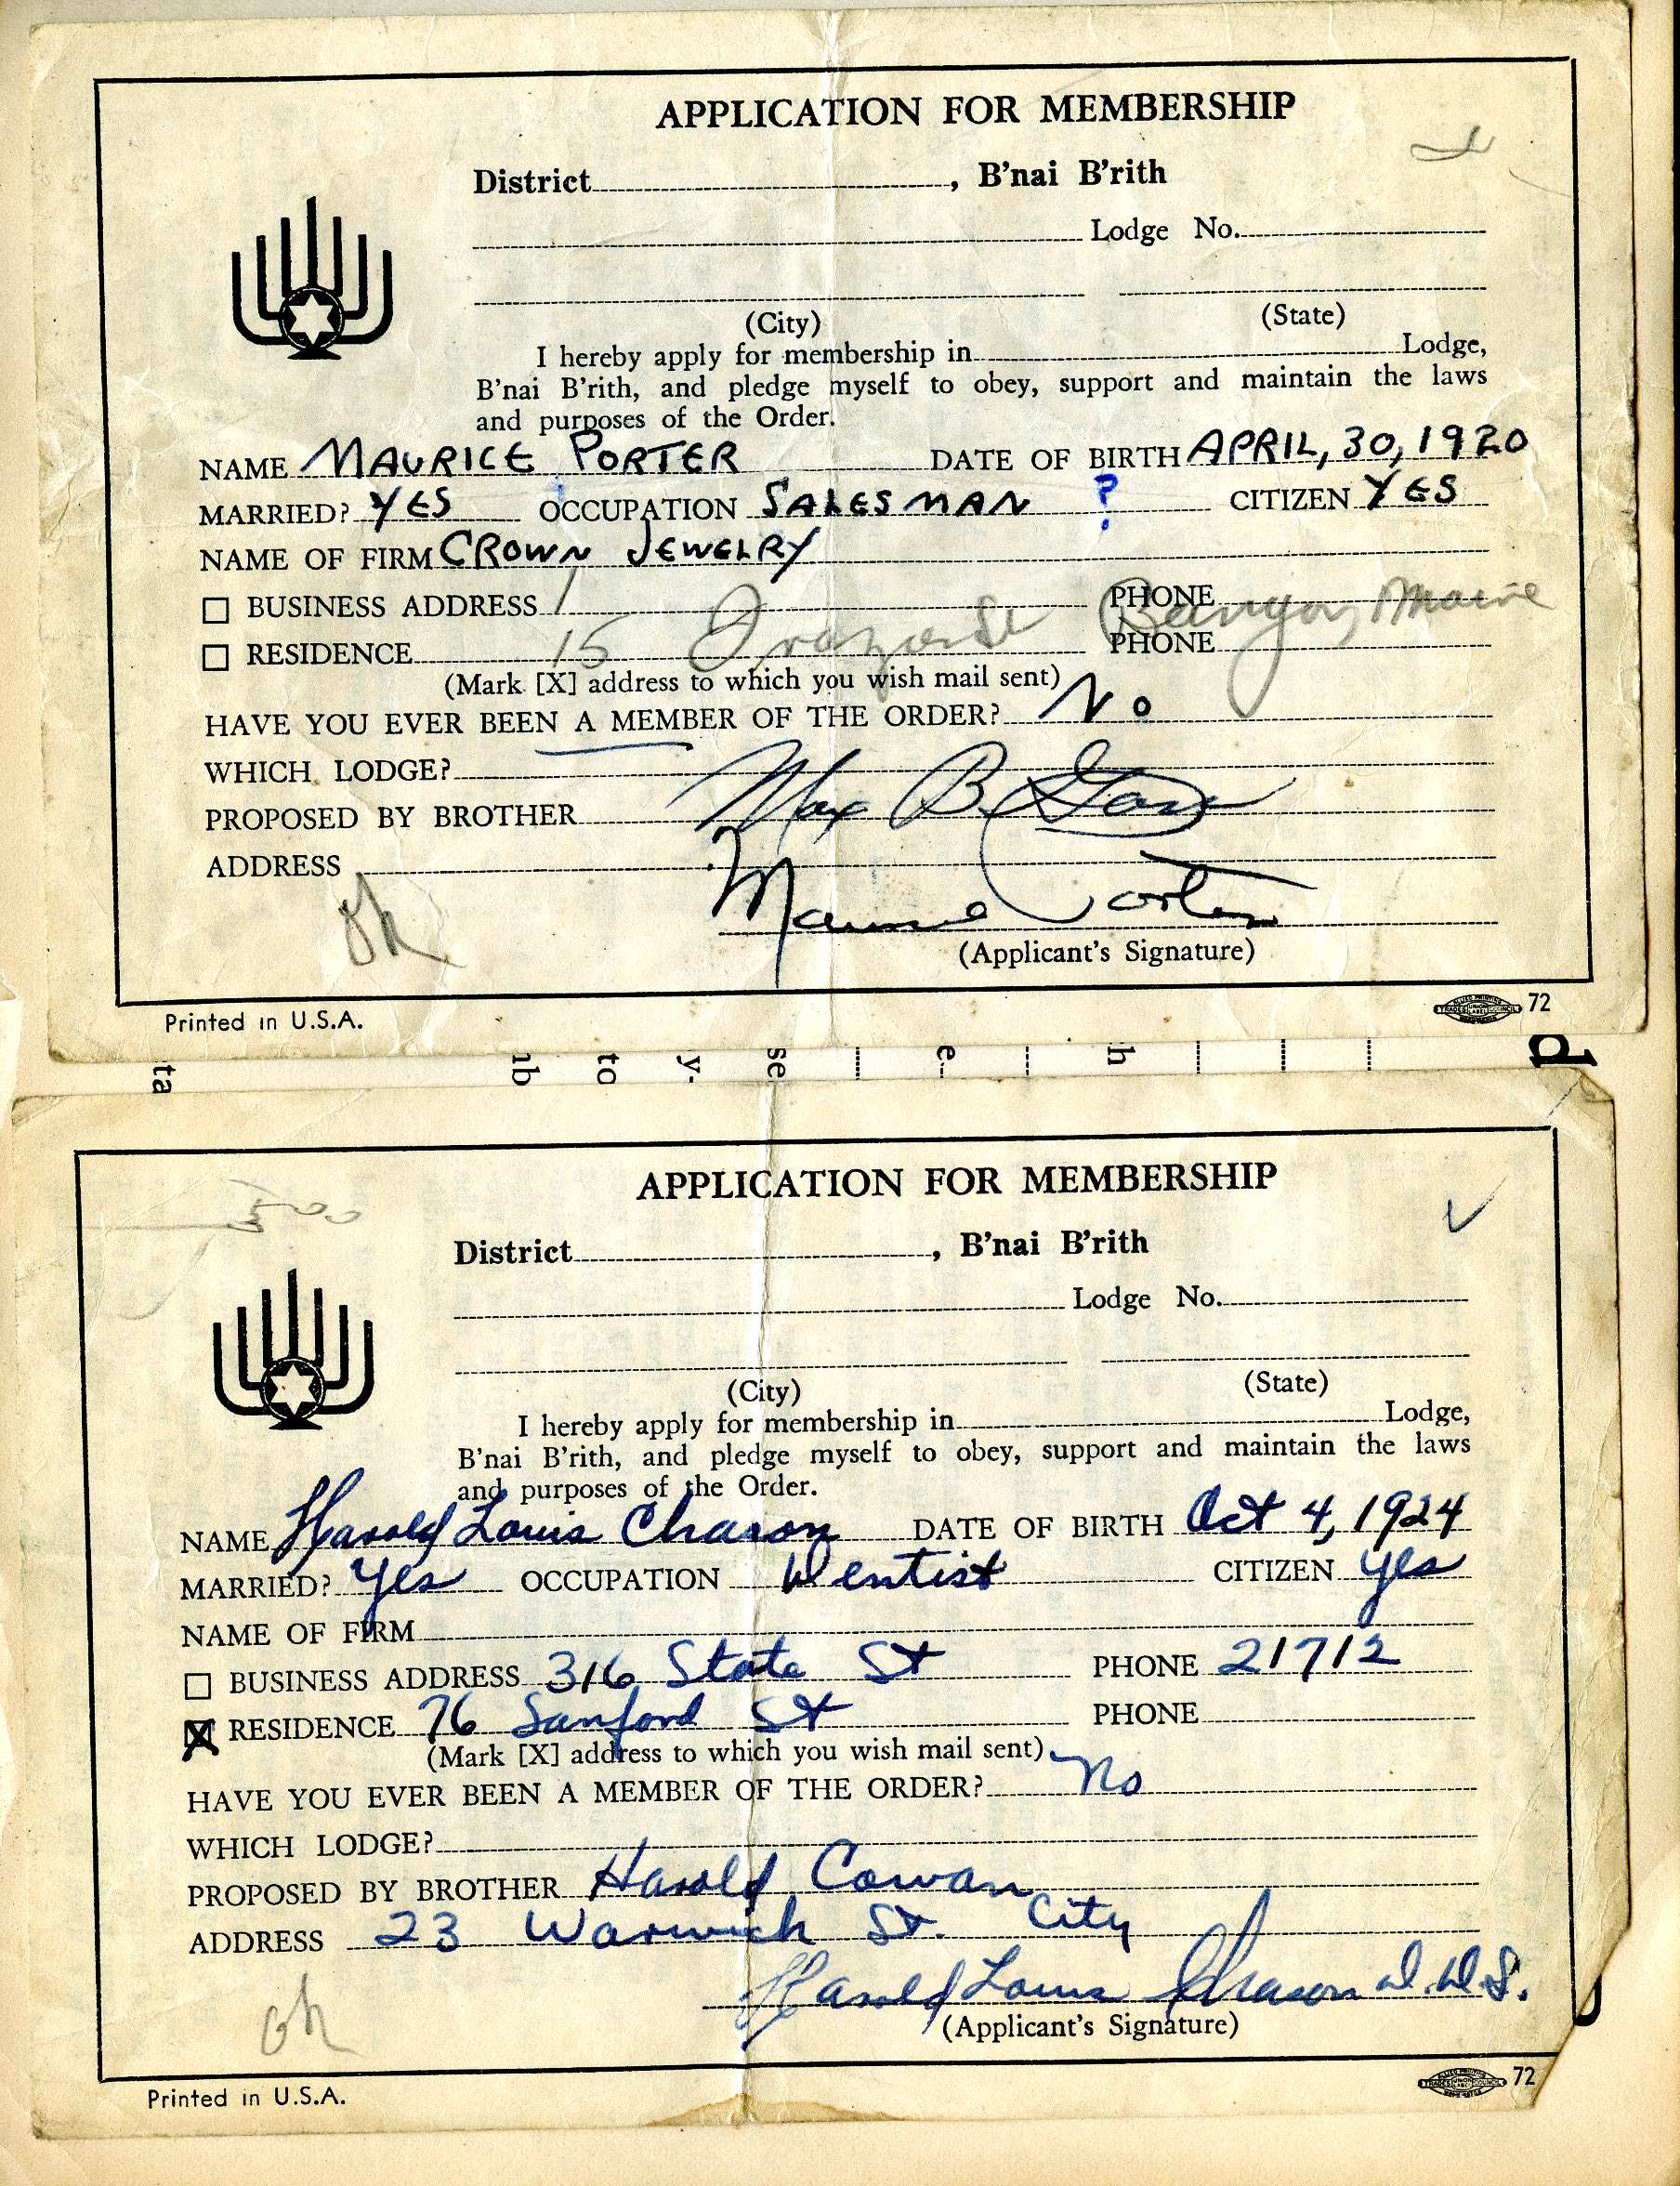 APPLICATION FOR MEMBERSHIP
District, B'nai B'rith
Lodge No.
(City) (State)
I hereby apply for membership in Lodge,
B'nai B'rith, and pledge myself to obey, support and maintain the laws
and purposes of the Order.
NAME MAURICE PORTER DATE OF BIRTH APRIL, 30, 1920
MARRIED? YES OCCUPATION SALESMAN ? CITIZEN YES
NAME OF FIRM CROWN JEWELRY
BUSINESS ADDRESS PHONE Bangor, Maine
RESIDENCE 15 St PHONE
(Mark [X] address to which you wish mail sent)
HAVE YOU EVER BEEN A MEMBER OF THE ORDER? No
WHICH LODGE?
PROPOSED BY BROTHER Max B.
ADDRESS
Maurice Porter
ok
(Applicant's Signature)
Printed in U.S.A. 72
ta nb to y- se e- h d
APPLICATION FOR MEMBERSHIP
District, B'nai B'rith
Lodge No.
(City) (State)
I hereby apply for membership in Lodge,
B'nai B'rith, and pledge myself to obey, support and maintain the laws
and purposes of the Order.
NAME Harold Louis Chason DATE OF BIRTH Oct 4, 1924
MARRIED? Yes OCCUPATION Dentist CITIZEN yes
NAME OF FIRM
BUSINESS ADDRESS 316 State St PHONE 21712
X RESIDENCE 76 Sanford St PHONE
(Mark [X] address to which you wish mail sent)
HAVE YOU EVER BEEN A MEMBER OF THE ORDER? No
WHICH LODGE?
PROPOSED BY BROTHER Harold Cowan
ADDRESS 23 Warwick St. City
Harold Louis Chason D.D.S.
ok
(Applicant's Signature)
Printed in U.S.A. 72